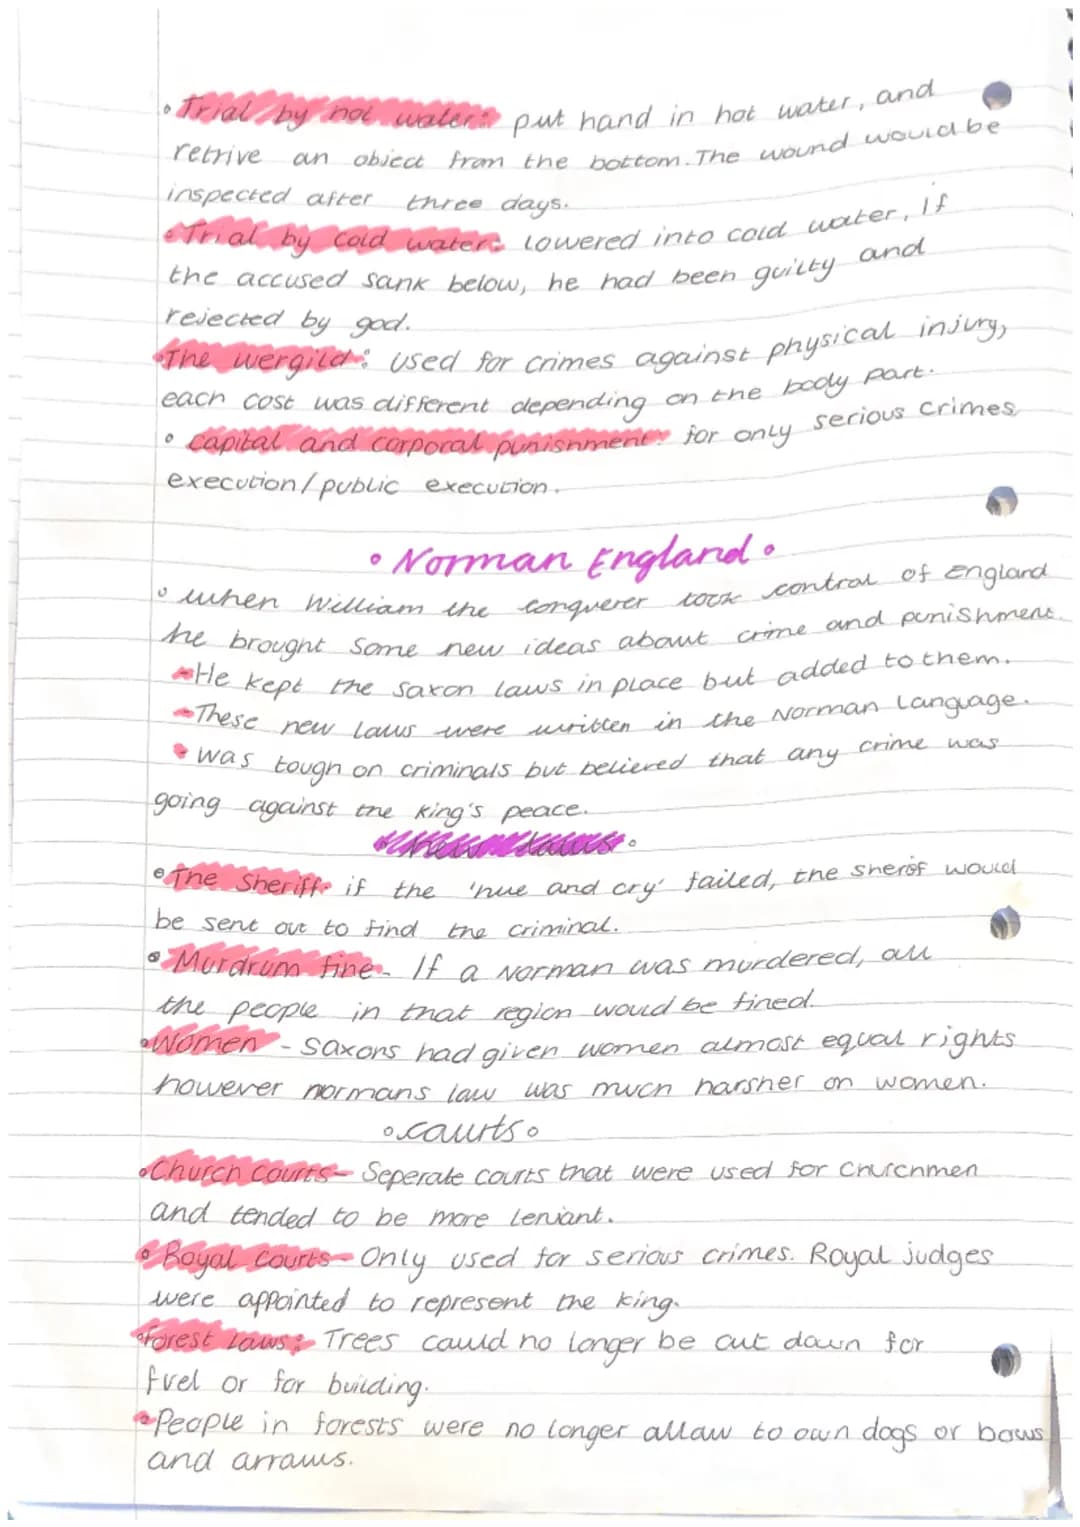 • Trial by hot water: put hand in hot water, and
retrive an object from the bottom. The wound would be
inspected after three days.
• Trial by cold water: lowered into cold water, if
the accused sank below, he had been guilty and
rejected by god.
• The wergild: used for crimes against physical injury,
each cost was different depending on the body part.
• Capital and corporal punishment: for only serious crimes
execution/public execution.
• Norman England •
• When William the conquerer took control of England
he brought some new ideas about crime and punishment.
- He kept the saxon laws in place but added to them.
- These new laws were written in the Norman Language.
• was tough on criminals but believed that any crime was
going against the king's peace.
• The Sheriff: if the 'hue and cry' failed, the sherif would
be sent out to find the criminal.
• Murdrum fine - If a Norman was murdered, all
the people in that region would be fined.
• Women - Saxons had given women almost equal rights
however normans law was much harsher on women.
• courts •
• Church Courts - Seperate courts that were used for churchmen
and tended to be more leniant.
• Royal Courts - Only used for serious crimes. Royal judges
were appointed to represent the king.
• Forest Laws: Trees could no longer be cut down for
fuel or for building.
• People in forests were no longer allow to own dogs or bows
and arrows.